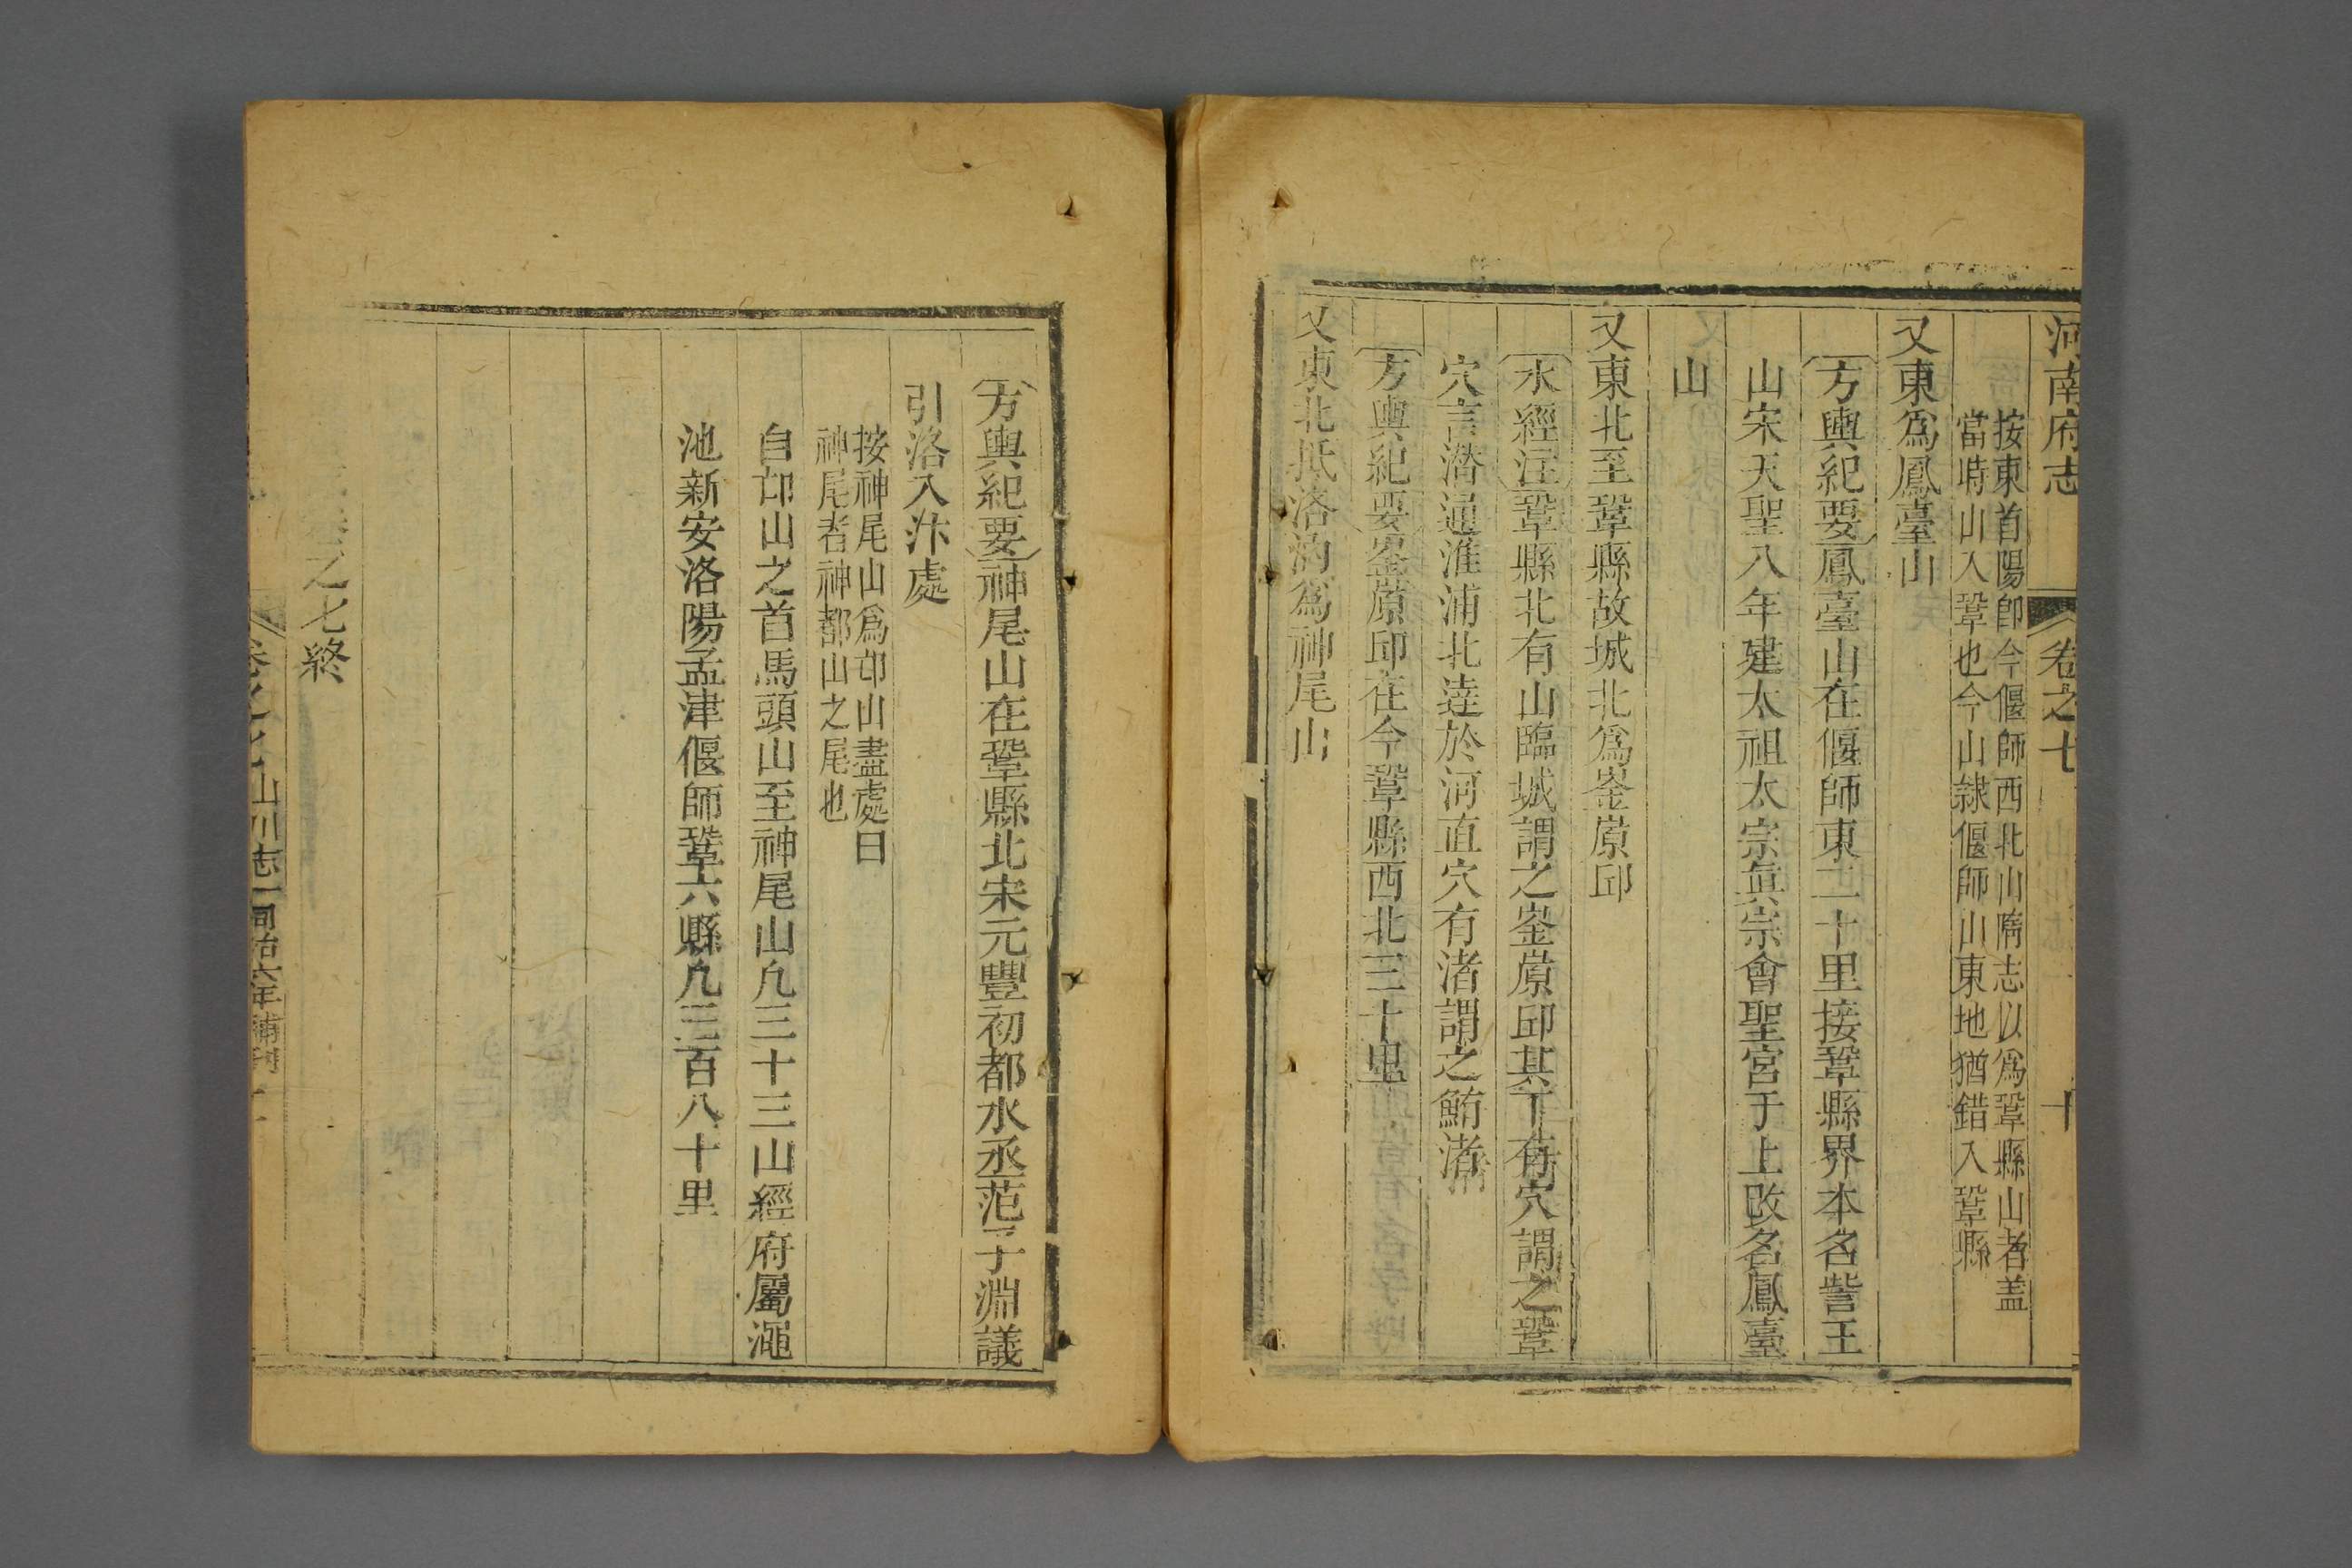 河南府志 卷之七 十
按東首陽卽今偃師西北山隋志以爲鞏縣山者盖
當時山入鞏也今山隷偃師山東地猶錯入鞏縣
又東爲鳳臺山
方輿紀要鳳臺山在偃師東二十里接鞏縣界本名訾王
山宋天聖八年建太祖太宗眞宗會聖宮于上改名鳳臺
山
又東北至鞏縣故城北爲崟原邱
水經注鞏縣北有山臨城謂之崟原邱其下有穴謂之鞏
穴言潛通淮浦北達於河直穴有渚謂之鮪渚
方輿紀要崟原邱在今鞏縣西北三十里
又東北抵洛汭爲神尾山
方輿紀要神尾山在鞏縣北宋元豐初都水丞范子淵議
引洛入汴處
按神尾山爲邙山盡處曰
神尾者神都山之尾也
自邙山之首馬頭山至神尾山凡三十三山經府屬澠
池新安洛陽孟津偃師鞏六縣凡三百八十里
卷之七終
卷之七 山川志一 同治六年補刊